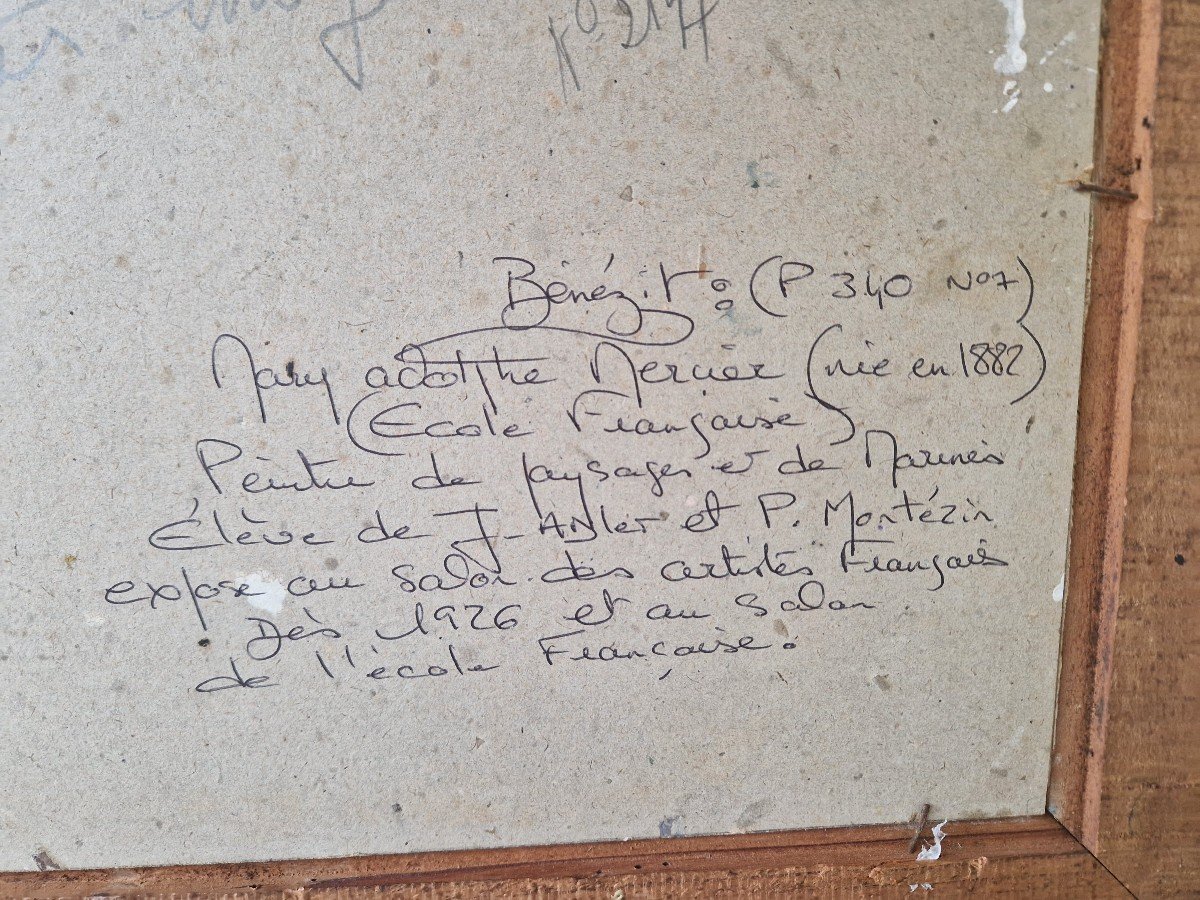 N° 217
Bénézit : (P 340 N°7)
Mary adolphe Mercier (née en 1882)
(Ecole Française)
Peintre de paysages et de Marines
Élève de J. Adler et P. Montézin
expose au salon des artistes Français
Dès 1926 et au salon
de l'école Française.